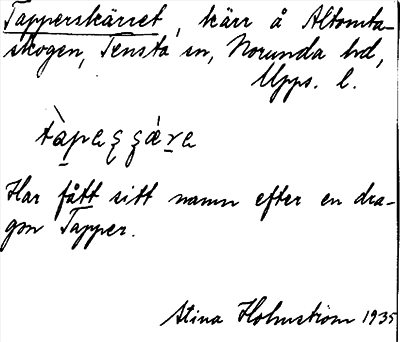 Tapperskärret, kärr å Altomta-
skogen, Tensta sn, Norunda hd,
Upps. l.
Har fått sitt namn efter en dra-
gon Tapper.
Stina Holmström 1935